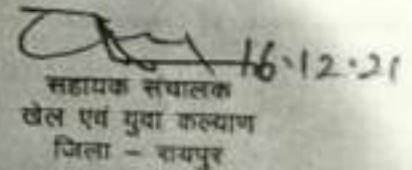 16.12.21
सहायक संचालक
खेल एवं युवा कल्याण
जिला - रायपुर